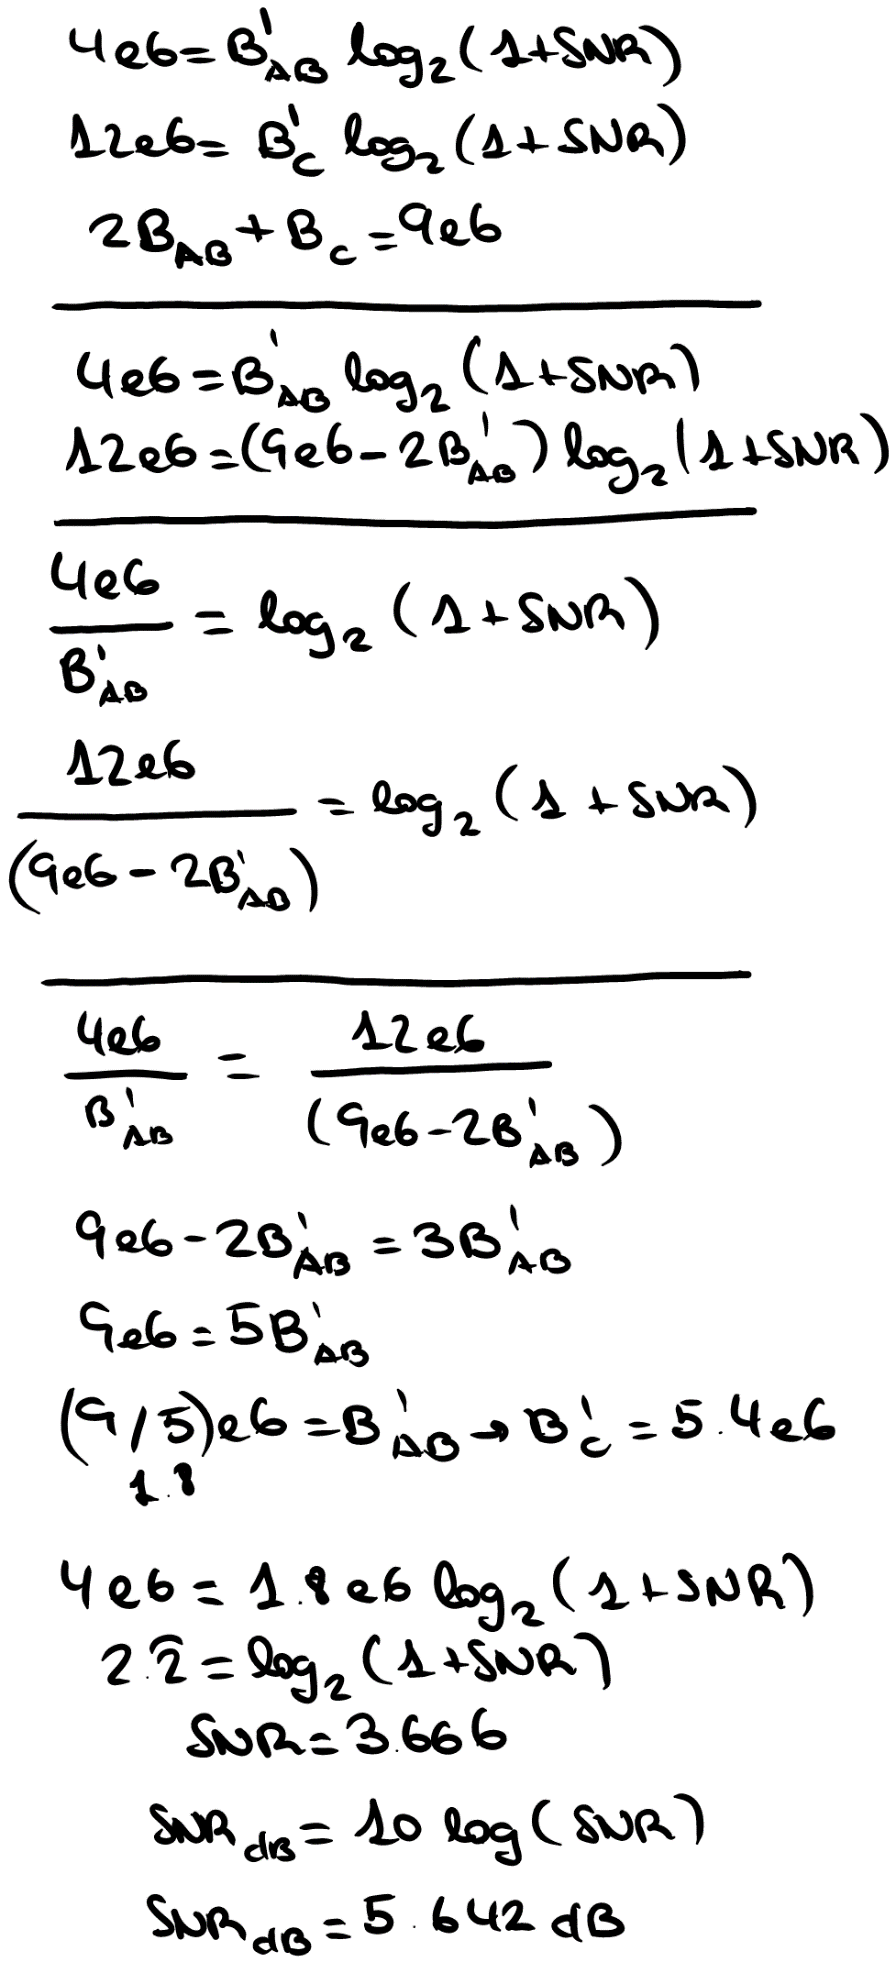 4e6 = B'_AB log_2 (1+SNR)
12e6 = B'_C log_2 (1+SNR)
2B_AB + B_C = 9e6
4e6 = B'_AB log_2 (1+SNR)
12e6 = (9e6 - 2B'_AB) log_2 (1+SNR)
4e6 / B'_AB = log_2 (1+SNR)
12e6 / (9e6 - 2B'_AB) = log_2 (1+SNR)
4e6 / B'_AB = 12e6 / (9e6 - 2B'_AB)
9e6 - 2B'_AB = 3B'_AB
9e6 = 5B'_AB
(9/5)e6 = B'_AB → B'_C = 5.4e6
1.8
4e6 = 1.8e6 log_2 (1+SNR)
2.2̄ = log_2 (1+SNR)
SNR = 3.666
SNR_dB = 10 log (SNR)
SNR_dB = 5.642 dB